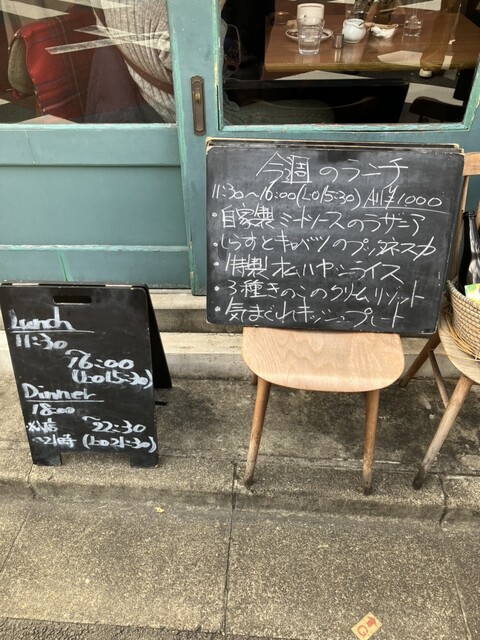 今週のランチ
11:30〜16:00(LO15:30) All ¥1000
・自家製ミートソースのラザニア
・しらすとキャベツのプッタネスカ
・特製オムハヤシライス
・3種きのこのクリームリゾット
・気まぐれキッシュプレート
Lunch
11:30
〜16:00
(LO15:30)
Dinner
18:00
〜22:30
(LO21:30)